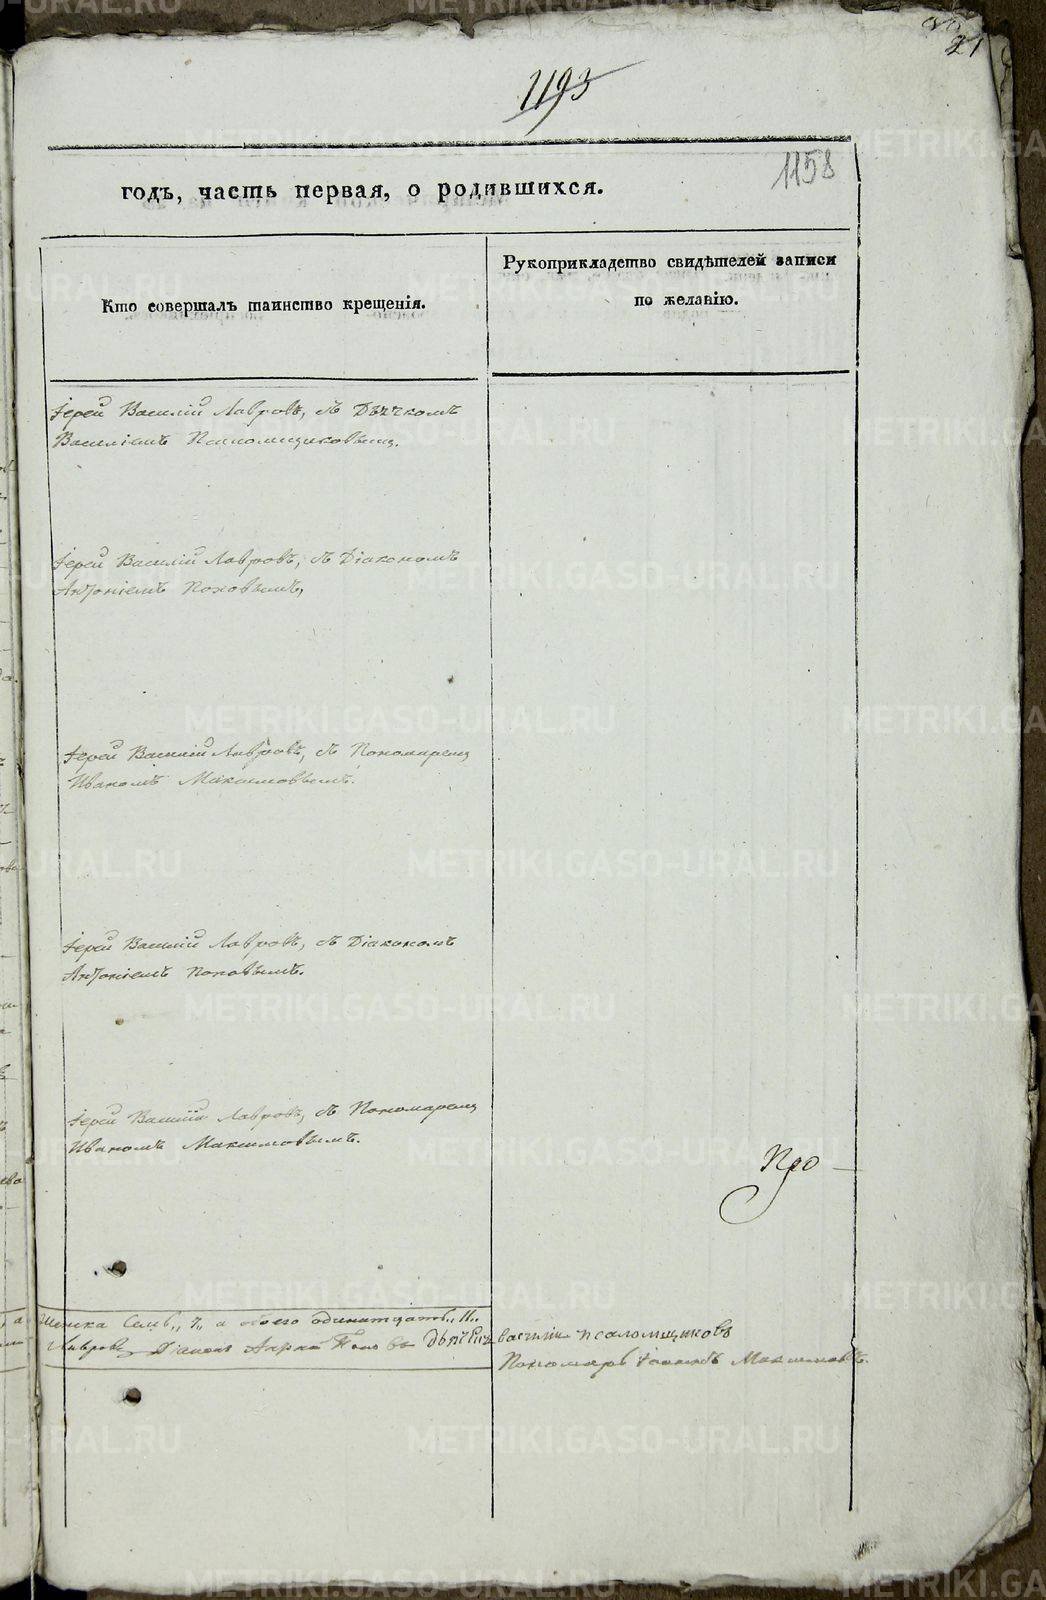 21
1193
1158
годъ, часть первая, о родившихся.
Кто совершалъ таинство крещенія.
Рукоприкладство свидѣтелей записи
по желанію.
Іерей Василій Лавровъ, съ Дьячкомъ
Василіемъ Псаломщиковымъ.
Іерей Василій Лавровъ, съ Діакономъ
Антоніемъ Поповымъ,
Іерей Василій Лавровъ, съ Пономаремъ
Иваномъ Максимовымъ.
Іерей Василій Лавровъ, съ Діакономъ
Антоніемъ Поповымъ.
Іерей Василій Лавровъ, съ Пономаремъ
Иваномъ Максимовымъ.
Про
женска Семь „7„ а обоего одинатцать „11„
Лавровъ Діаконъ Поповъ Дьячекъ василіи псаломщиковъ
Пономарь Іоаннъ Максимовъ.
METRIKI.GASO-URAL.RU